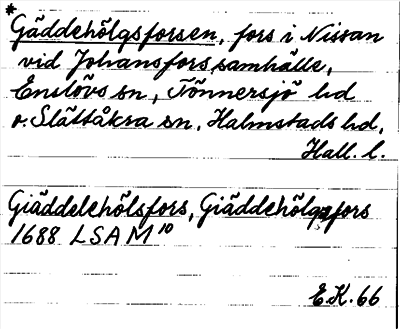 *
Gäddehölgsforsen, fors i Nissan
vid Johansfors samhälle,
Enslövs sn, Tönnersjö hd
o. Slättåkra sn, Halmstads hd,
Hall. l.
Giäddelehölsfors, Giäddehölgzfors
1688 LSA M¹⁰
E.K. 66